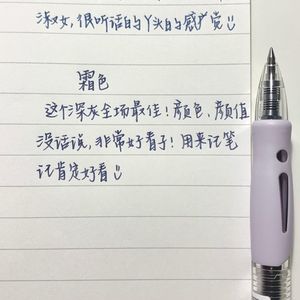 淑女，很听话的丫头的感觉
霜色
这个深灰全场最佳！颜色、颜值
没话说，非常好看了！用来记笔
记肯定好看